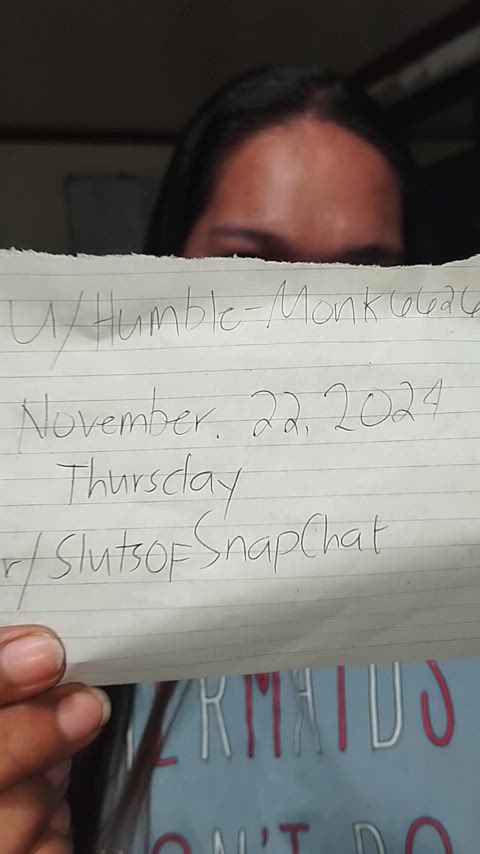 u/Humble-Monk6626
November. 22, 2024
Thursday
r/SlutsOFSnapChat
ERMAIDS
ON'T DO